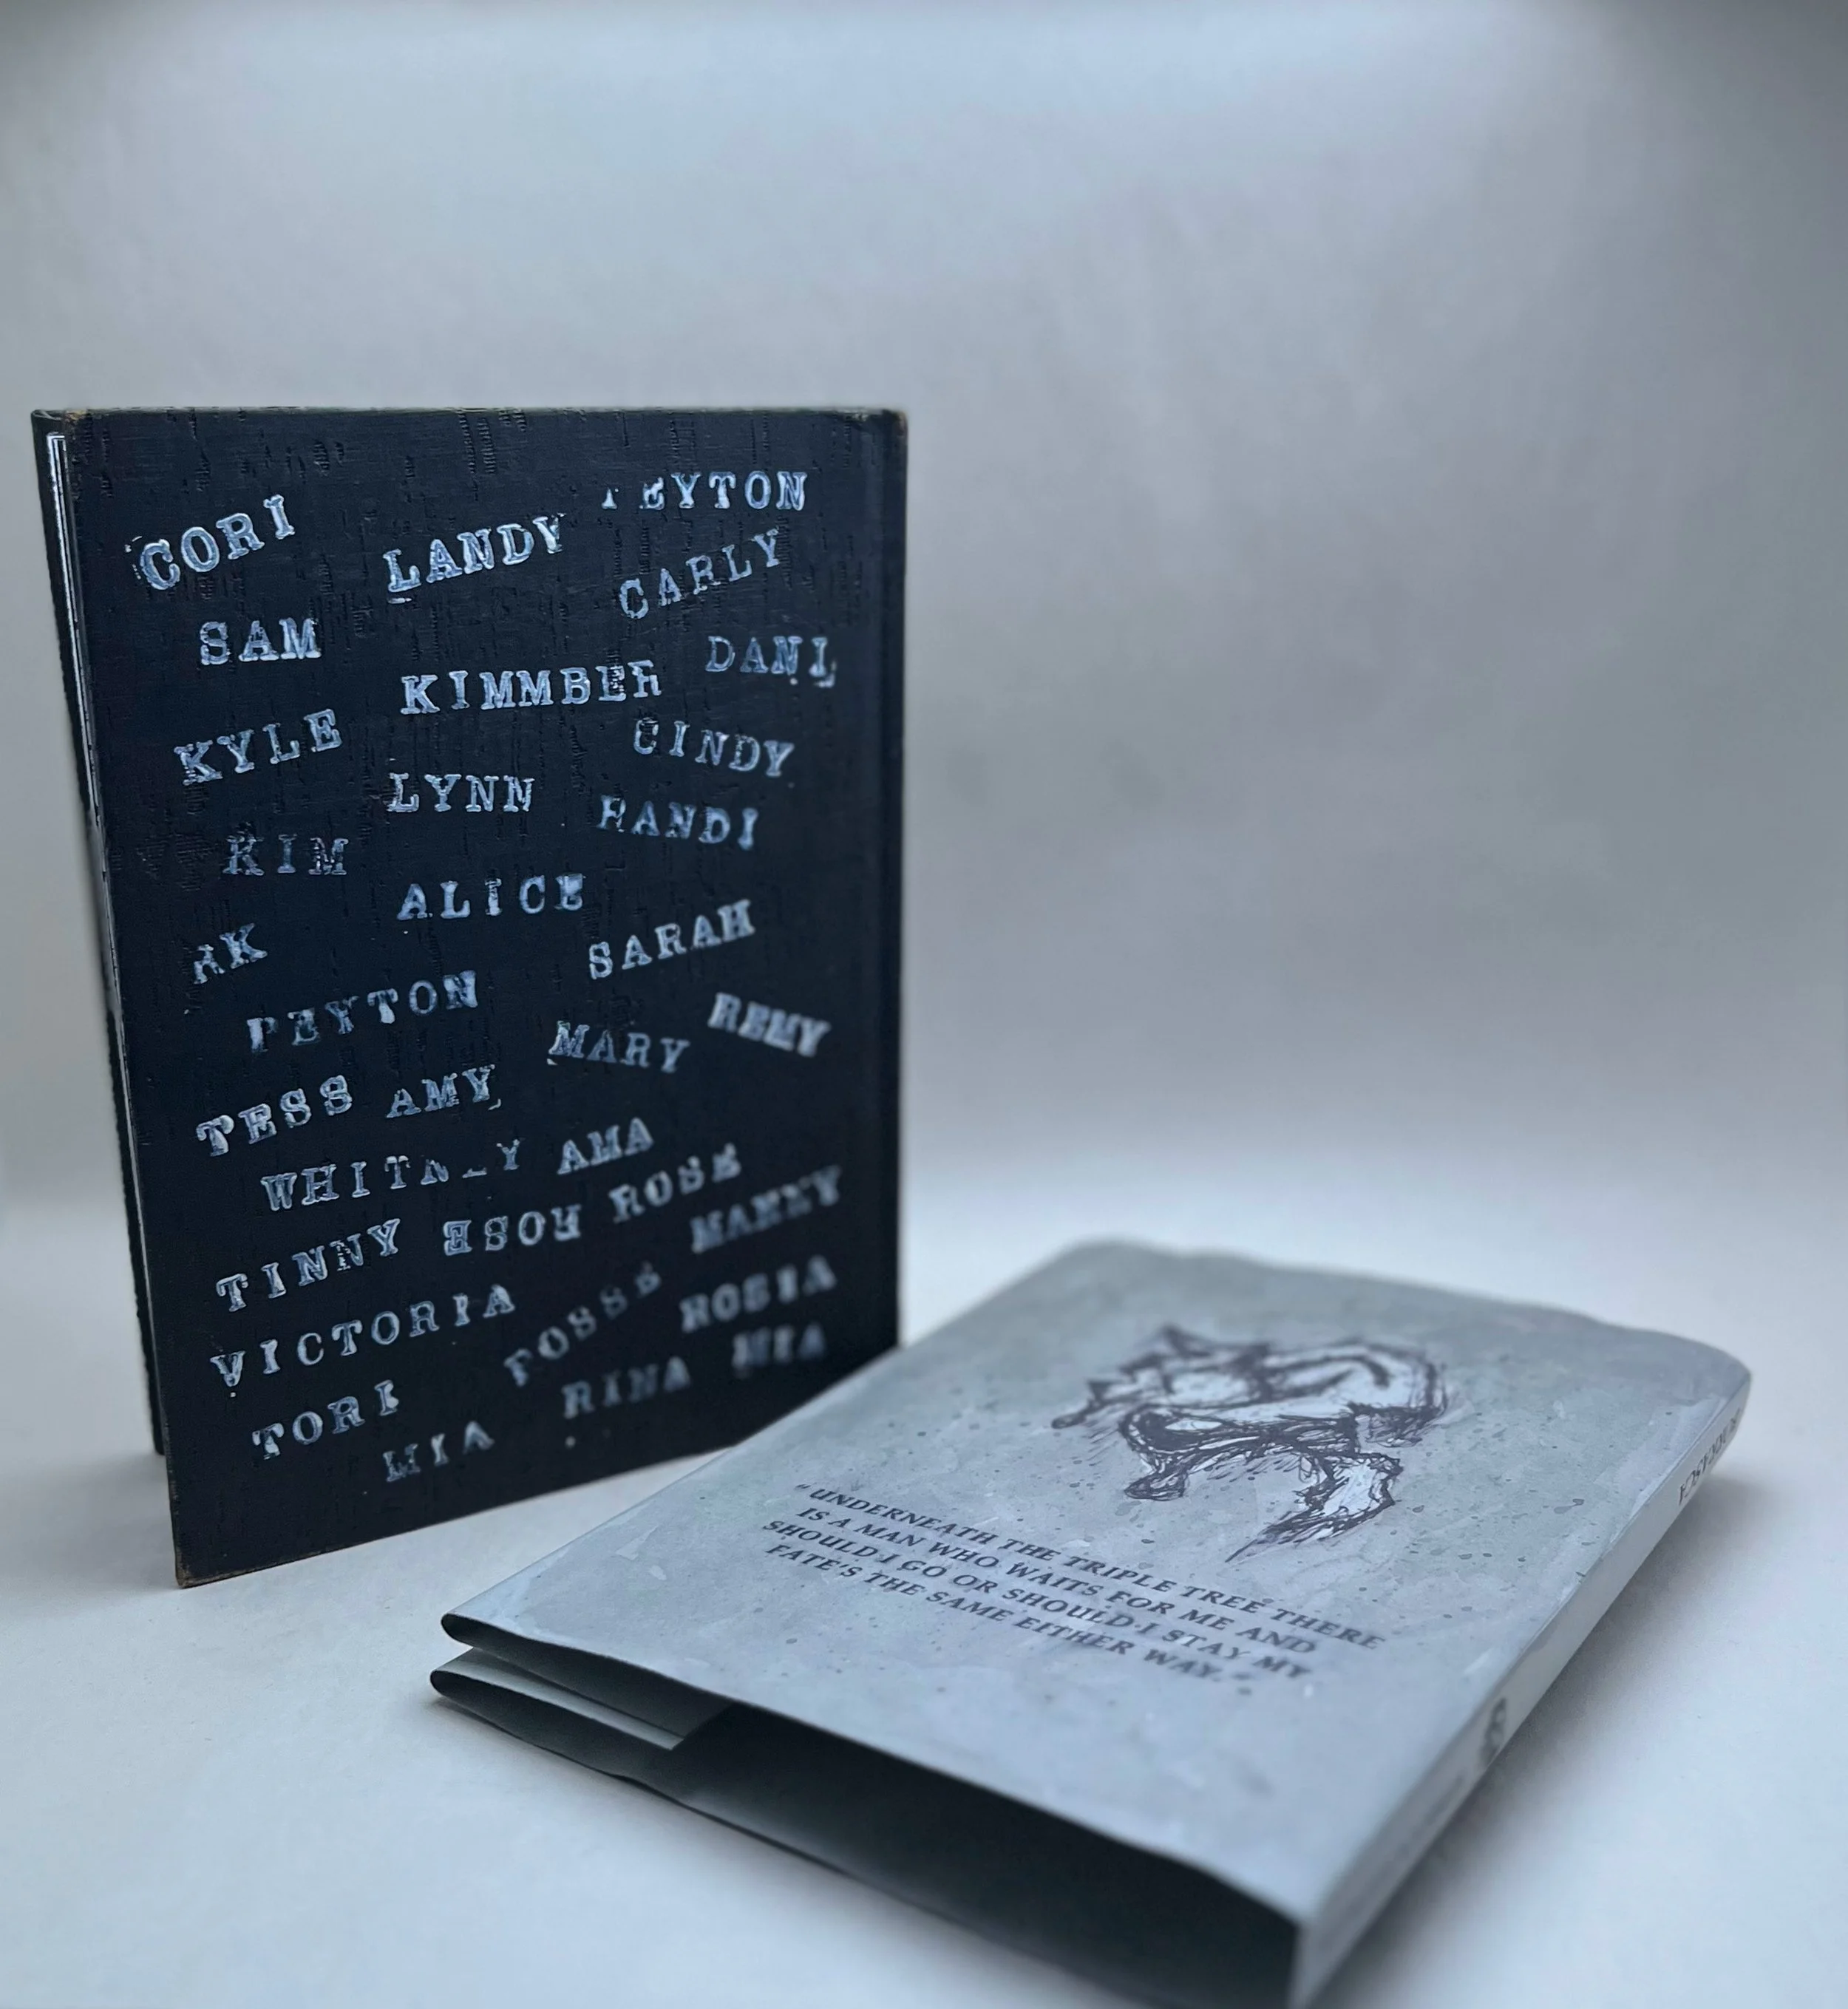 CORI
LANDY
PEYTON
CARLY
SAM
KIMMBER
DANI
KYLE
CINDY
LYNN
RANDI
KIM
ALICE
AK
SARAH
PEYTON
MARY
REMY
TESS AMY
WHITNEY AMA
TINNY ROSE ROSE
MANNY
VICTORIA
POSSE
ROSIA
TORI
RINA
MIA
MIA
“UNDERNEATH THE TRIPLE TREE THERE
IS A MAN WHO WAITS FOR ME AND
SHOULD I GO OR SHOULD I STAY MY
FATE'S THE SAME EITHER WAY.”